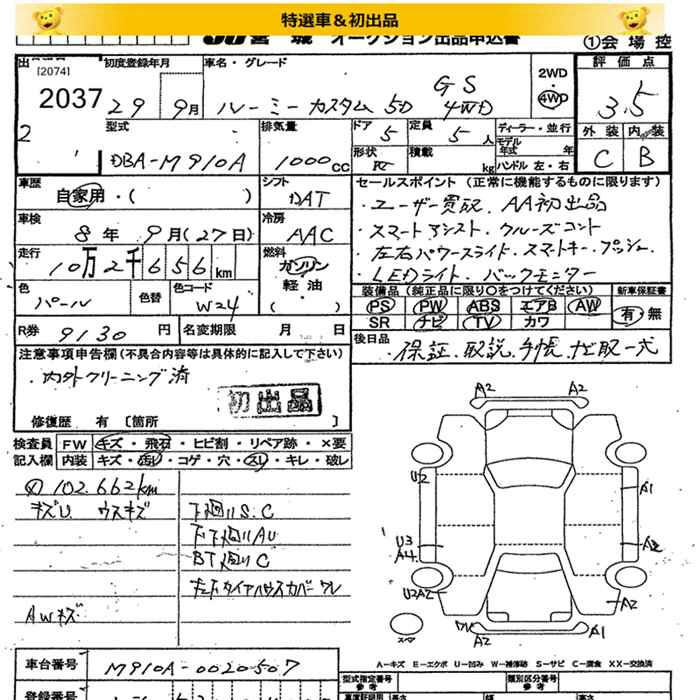 特選車＆初出品
JU 宮城 オークション出品申込書
①会場控
初度登録年月 車名・グレード 評価点
[2074]
2037
29 9月 ルーミーカスタム 5D GS 4WD
2WD・4WD
3.5
型式 排気量 ドア 定員 ディーラー・並行
DBA-M910A 1000CC 5 5人
モデル年式 年
形状 積載 kg ハンドル 左・右
外装 内装
C B
車歴 自家用・( ) シフト DAT
車検 8年9月(27日) 冷房 AAC
走行 10万2千656km 燃料 ガソリン 軽油・( )
色 パール 色替 色コード W24
R券 9130円 名変期限 月 日
セールスポイント (正常に機能するものに限ります)
・ユーザー買取、AA初出品
・スマートアシスト・クルーズコント
・左右パワースライド・スマートキー・プッシュ・
・LEDライト・バックモニター
装備品(純正品に限り○をつけてください) 新車保証書
PS PW ABS エアB AW 有・無
SR ナビ TV カワ
後日品 保証、取説、手帳、ナビ取一式
注意事項申告欄(不具合内容等は具体的に記入して下さい)
・内外クリーニング済
初出品
修復歴 有 [箇所 ]
検査員 FW キズ・飛石・ヒビ割・リペア跡・×要
記入欄 内装 キズ・汚レ・コゲ・穴・スレ・キレ・破レ
102.662km
キズU ウスキズ
下廻りS.C
下廻りAU
BT廻りC
AWキズ
A2 A2
U2 A1
U3 A2
A4
U2A2 A2
A2 A1
スペア
A－キズ E－エクボ U－凹み W－補修跡 S－サビ C－腐食 XX－交換済
車台番号 M910A-0020507
登録番号
型式指定番号 類別区分番号
参考 参考
長さ 幅 高さ